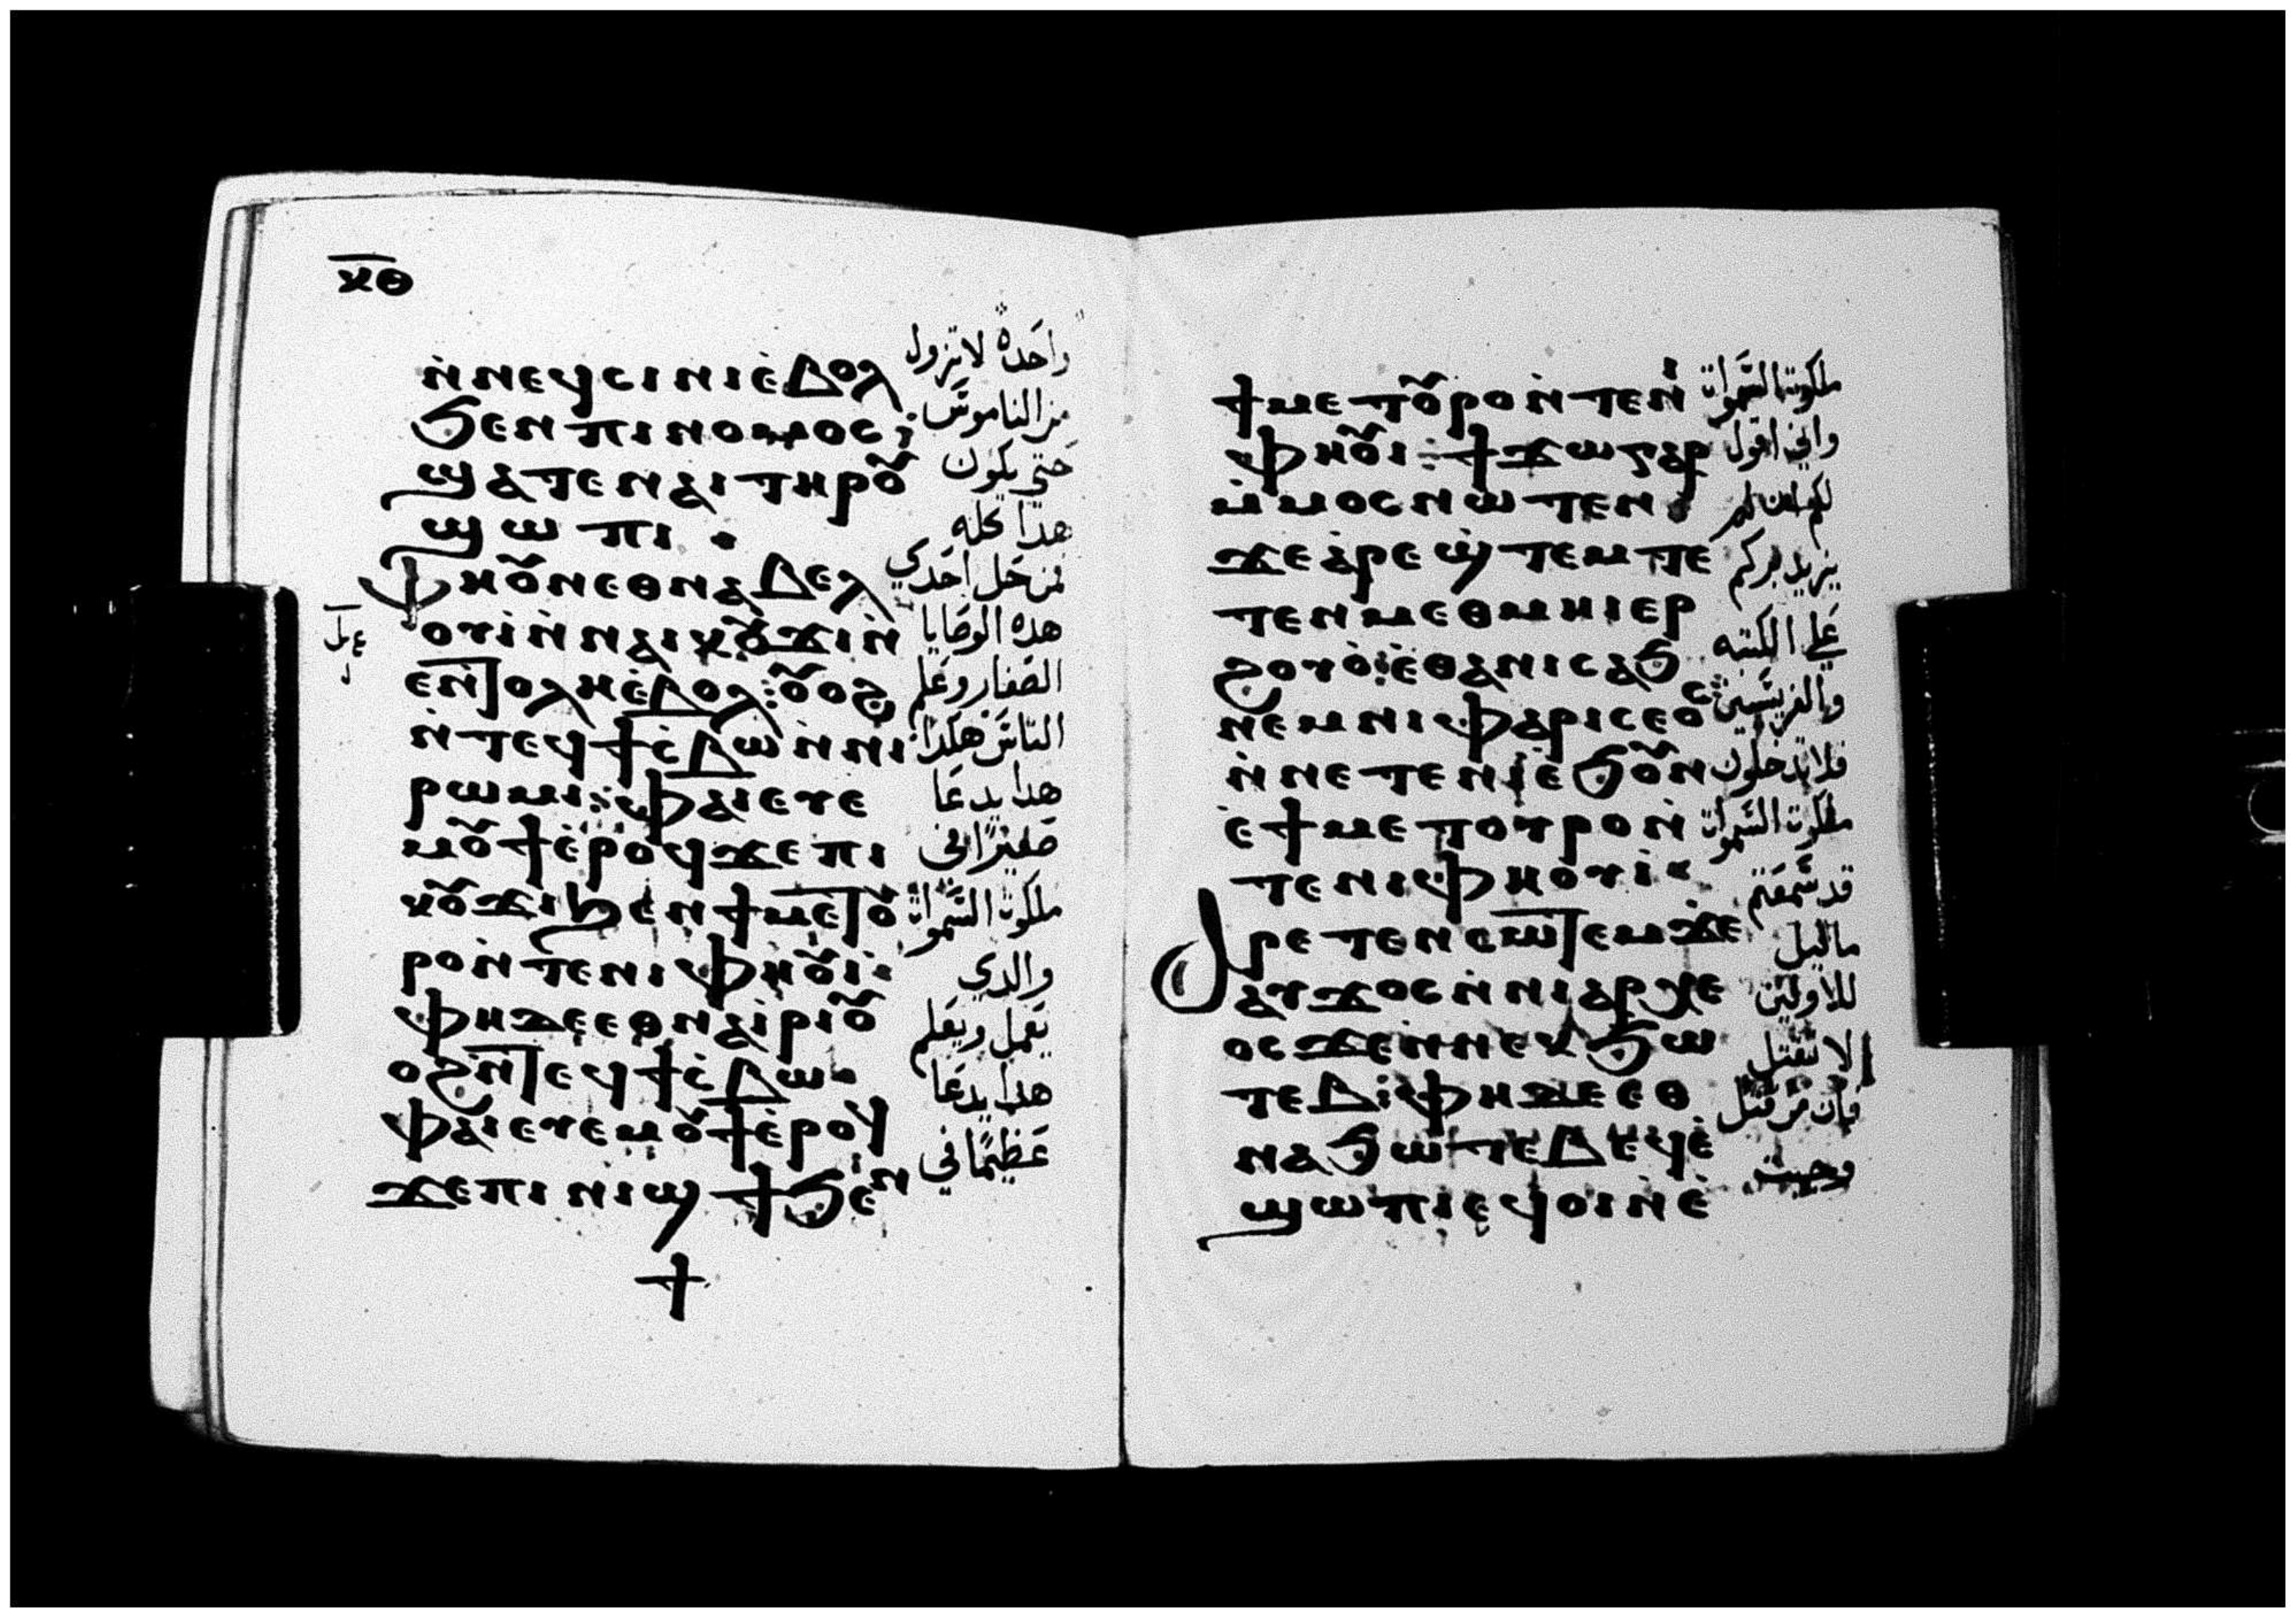 ⲕ̅ⲑ̅
ⲛ̀ⲛⲉϥⲥⲓⲛⲓⲉ̀ⲃⲟⲗ
ϧⲉⲛⲡⲓⲛⲟⲙⲟⲥ⁏
ϣⲁⲧⲉⲛⲁⲓⲧⲏⲣⲟ⩒
ϣⲱⲡⲓ ·
ⲫⲏⲟ⩒ⲛⲉⲑⲛⲁⲃⲉⲗ
ⲟⲩⲓ̀ⲛ̀ⲛⲁⲓⲕⲟ⩒ϫⲓⲛ̀
ⲉⲛ̀ⲧⲟⲗⲏⲉ̀ⲃⲟⲗ⁏ⲟ̀ⲩⲟϩ
ⲛ̀ⲧⲉϥϯⲥ̀ⲃⲱⲛ̀ⲛⲓ
ⲣⲱⲙⲓ⁏ⲫⲁⲓⲉⲩⲉ
ⲙⲟ⩒ϯⲉ̀ⲣⲟϥϫⲉⲡⲓ
ⲕⲟ⩒ϫⲓϧⲉⲛϯⲙⲉⲧⲟ̀ⲩ
ⲣⲟⲛ̀ⲧⲉⲛⲓⲫⲏⲟ⩒ⲓ̀
ⲫⲏⲇⲉⲉⲑⲛⲁⲓ̀ⲣⲓⲟ̀ⲩ
ⲟϩⲛ̀ⲧⲉϥϯⲥ̀ⲃⲱ·
ⲫⲁⲓⲉⲩⲉⲙⲟ⩒ϯⲉ̀ⲣⲟϥ
ϫⲉⲡⲓⲛⲓϣϯϧⲉⲛ
واحدة لا تزول
من الناموس
حتى يكون
هدا كله
فمن حل احدي
هده الوصايا
الصغار وعلم
الناس هكدا
هدا يدعا
صغيرًا في
ملكوت السموات
والدي
يعمل ويعلم
هدا يدعا
عظيمًا في
ϯ
ϯⲙⲉⲧⲟ⩒ⲣⲟⲛ̀ⲧⲉⲛⲓ̀
ⲫⲏⲟ⩒ⲓ⁏ϯϫⲱⲅⲁⲣ
ⲙ̀ⲙⲟⲥⲛⲱⲧⲉⲛ⁏
ϫⲉⲁ̀ⲣⲉϣ̀ⲧⲉⲙⲡⲉ
ⲧⲉⲛⲙⲉⲑⲙⲏⲓⲉⲣ
ϩⲟⲩⲟ̀⁏ⲉ̀ⲑⲁⲛⲓⲥⲁϧ
ⲛⲉⲙⲛⲓⲫⲁⲣⲓⲥⲉⲟⲥ
ⲛ̀ⲛⲉⲧⲉⲛⲓ̀ⲉ̀ϧⲟ⩒ⲛ
ⲉ̀ϯⲙⲉⲧⲟⲩⲣⲟⲛ̀
ⲧⲉⲛⲓⲫⲏⲟⲩⲓ̀
ⲁⲣⲉⲧⲉⲛⲥⲱⲧⲉⲙϫⲉ
ⲁⲩϫⲟⲥⲛ̀ⲛⲓⲁⲣⲭⲉ
ⲟⲥϫⲉⲛ̀ⲛⲉⲕϧⲱ
ⲧⲉⲃ⁏ⲫⲏⲇⲉⲉⲑ
ⲛⲁϧⲱⲧⲉⲃⲉϥⲉ̀
ϣⲱⲡⲓⲉϥⲟⲓⲛ̀ⲉ̀
ملكوت السموات
واني اقول
لكم ان لم
يزيد بركم
علي الكتبه
والفريسيين
فلا تدخلون
ملكوت السموات
قد سمعتم
ما قيل
للاولين
لا تقتل
فان من قتل
وجبت